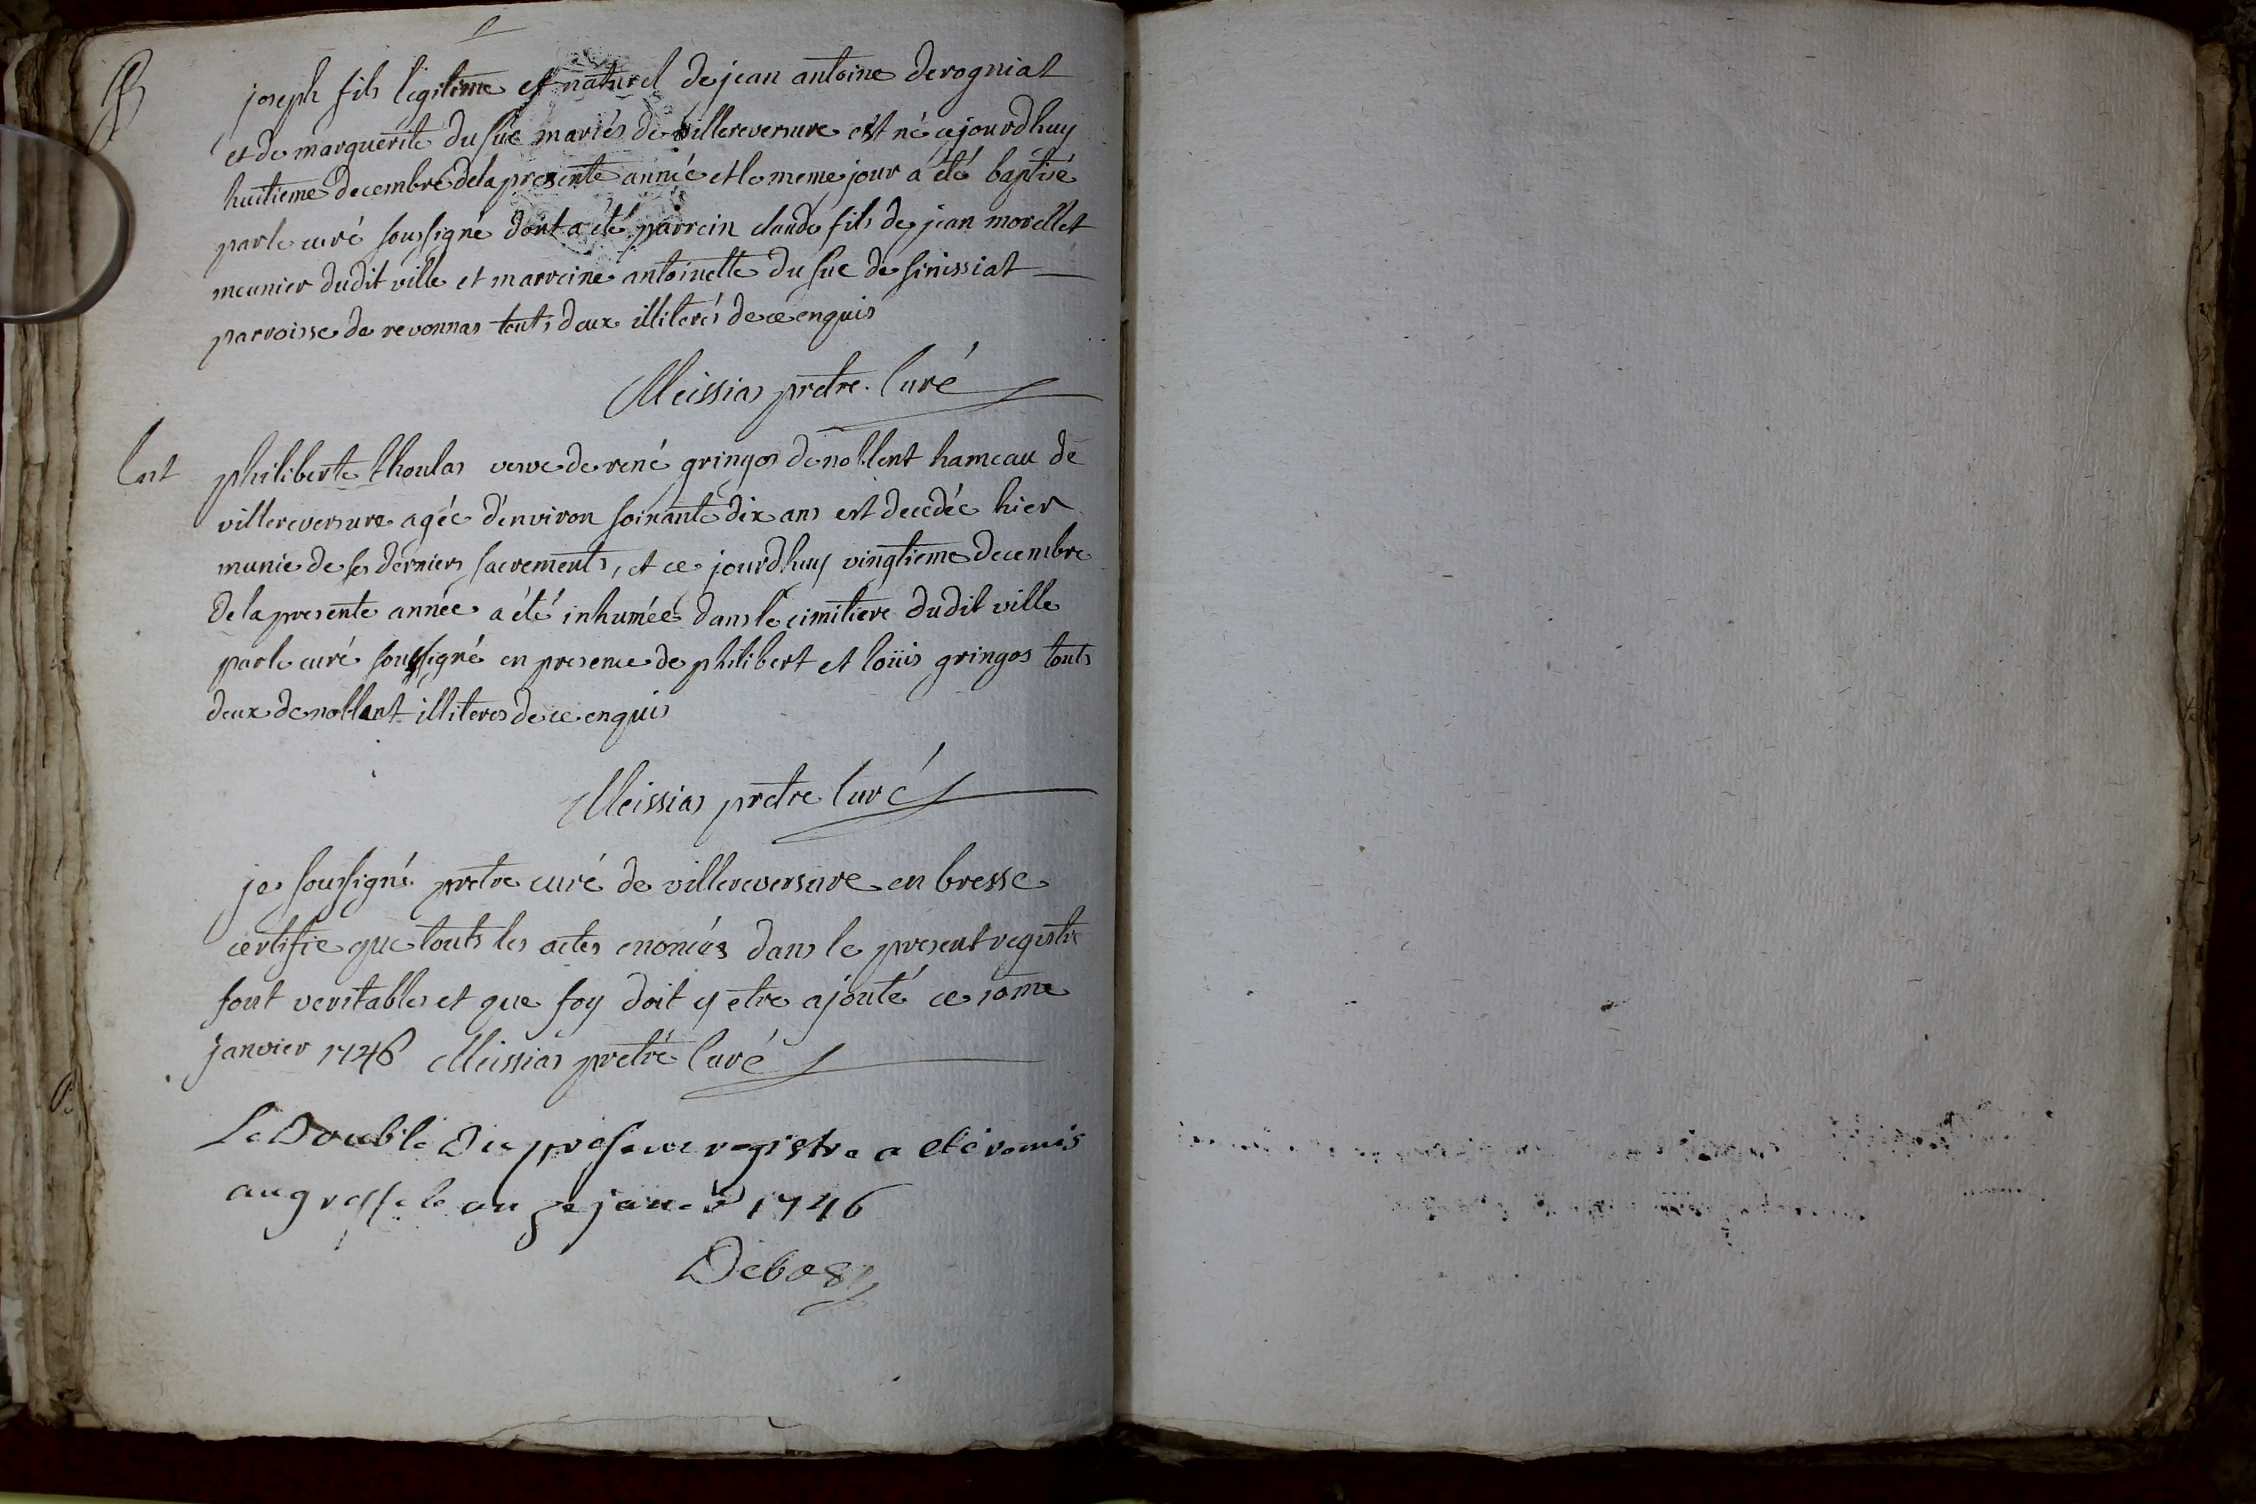 B
joseph fils legitime et naturel de jean antoine derogniat
et de marguerite du suc mariés de villereversure est né cejourdhuy
huitieme decembre dela presente année et le meme jour a été baptisé
par le curé soussigné dont a été parrein claude fils de jean morellet
meunier dudit ville et marreine antoinette du suc de sinissiat
parroisse de revonnas touts deux illiterés de ce enquis
Meissias pretre Curé
Ent philiberte thoulas veuve de rené gringos de noblent hameau de
villereversure agée d'environ soixante dix ans est decedée hier
munie de ses derniers sacrements, et ce jourdhuy vingtieme decembre
De la presente année a été inhumée dans le cimitiere dudit ville
par le curé soussigné en presence de philibert et loüis gringos touts
deux de noblant illiteres de ce enquis
Meissias pretre Curé
je soussigné pretre curé de villereversure en bresse
certifie que touts les actes enoncés dans le present registre
sont veritables et que foy doit y etre ajouté ce 10me
janvier 1746 Meissias pretre Curé
Le Double Du present registre a eté remis
au greffe le janvier 1746
Debost